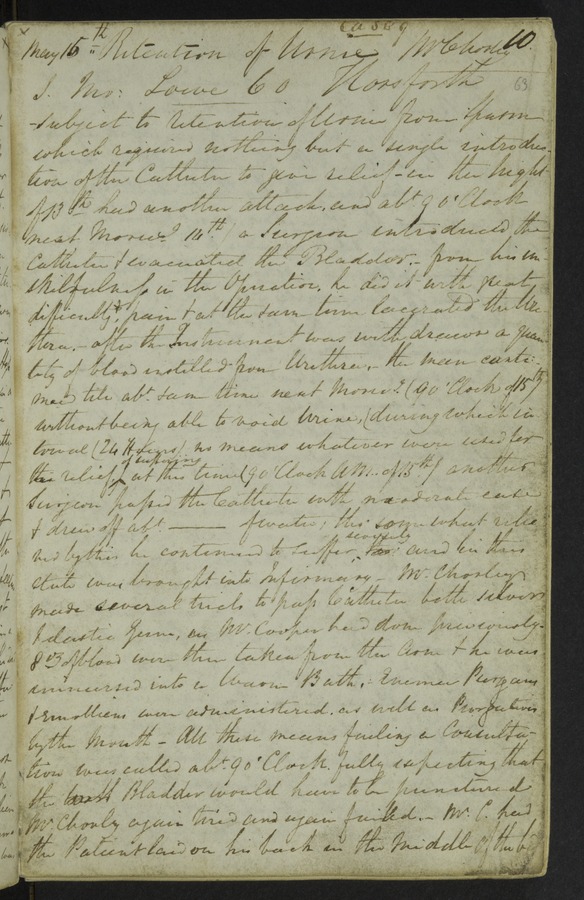 Case 9
May 15th Retention of Urine Mr Chorley 10.
J. Mo: Lowe 60 Horsforth 63
subject to retention of Urine from spasm
which required nothing but a single introduc-
tion of the Catheter to give relief - in the night
of 13th had another attack, and abt 9 o'Clock
next Morng 14th a Surgeon introduced the
Catheter & evacuated the Bladder - from his un-
skilfulness in the Operation, he did it with great
difficulty & pain & at the same time lacerated the Ure-
thra. - after the Instrument was withdrawn a quan
tity of blood instilled from Urethra, - the man conti-
nued till abt same time next Morng (9 o'Clock of 15th)
without being able to void Urine, (during which in
terval (24 Hours) no means whatever were used for
the relief of suffering at this time (9 o'Clock AM. of 15th) another
Surgeon passed the Catheter with moderate ease
& drew off abt. —— of water; tho' somewhat relie
ved by this he continued to suffer severely and in this
state was brought into Infirmary - Mr. Chorley
made several trials to pass Catheter both silver
& elastic Gum, as Mr. Cooper had done previously.
8 oz of blood were then taken from the arm & he was
immersed into a Warm Bath, - Enemas Purgans
& emolliens were administered. as well as Purgatives
by the Mouth - All these means failing a Consulta-
tion was called abt 9 o'Clock, fully expecting that
the Bladder would have to be punctured
Mr. Chorley again tried and again failed. - Mr. C. had
the Patient laid on his back in the Middle of the bed